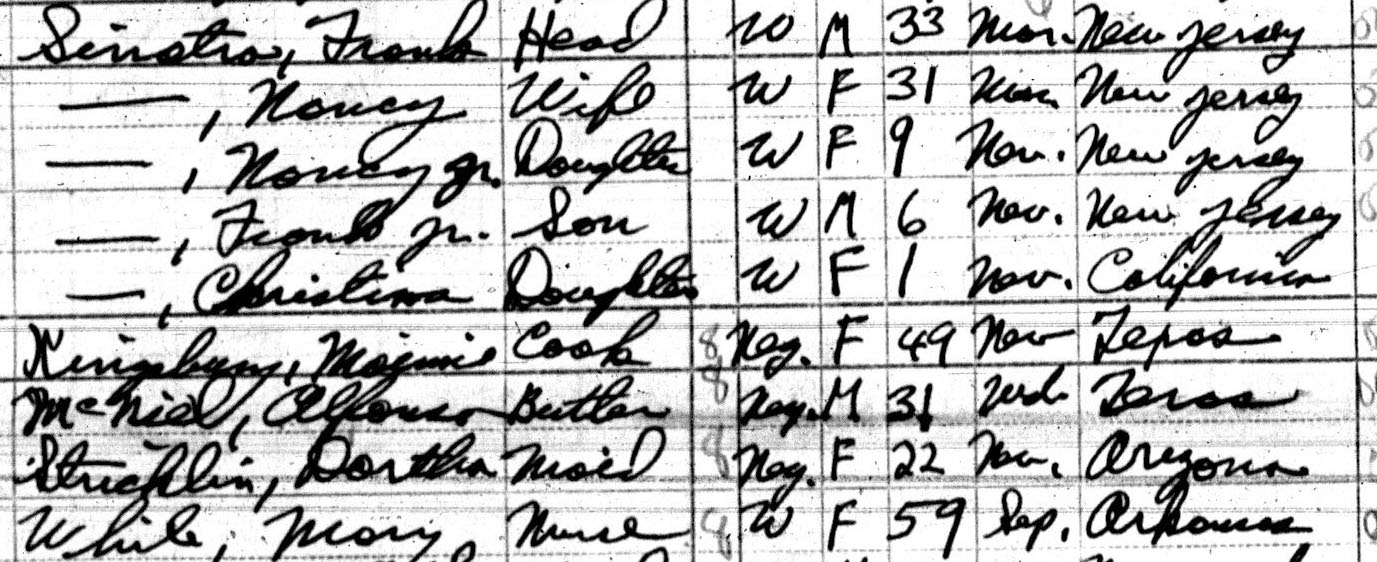 Sinatra, Frank Head W M 33 Mar. New Jersey
—, Nancy Wife W F 31 Mar. New Jersey
—, Nancy Jr. Daughter W F 9 Nev. New Jersey
—, Frank Jr. Son W M 6 Nev. New Jersey
—, Christina Daughter W F 1 Nev. California
Kingsbury, Maimie Cook 8 Neg. F 49 Nev Texas
McNiel, Alfonso Butler 8 Neg. M 31 Wd. Texas
Stricklin, Dortha Maid 8 Neg. F 22 Nev. Arizona
White, Mary Nurse 8 W F 59 Sep. Arkansas